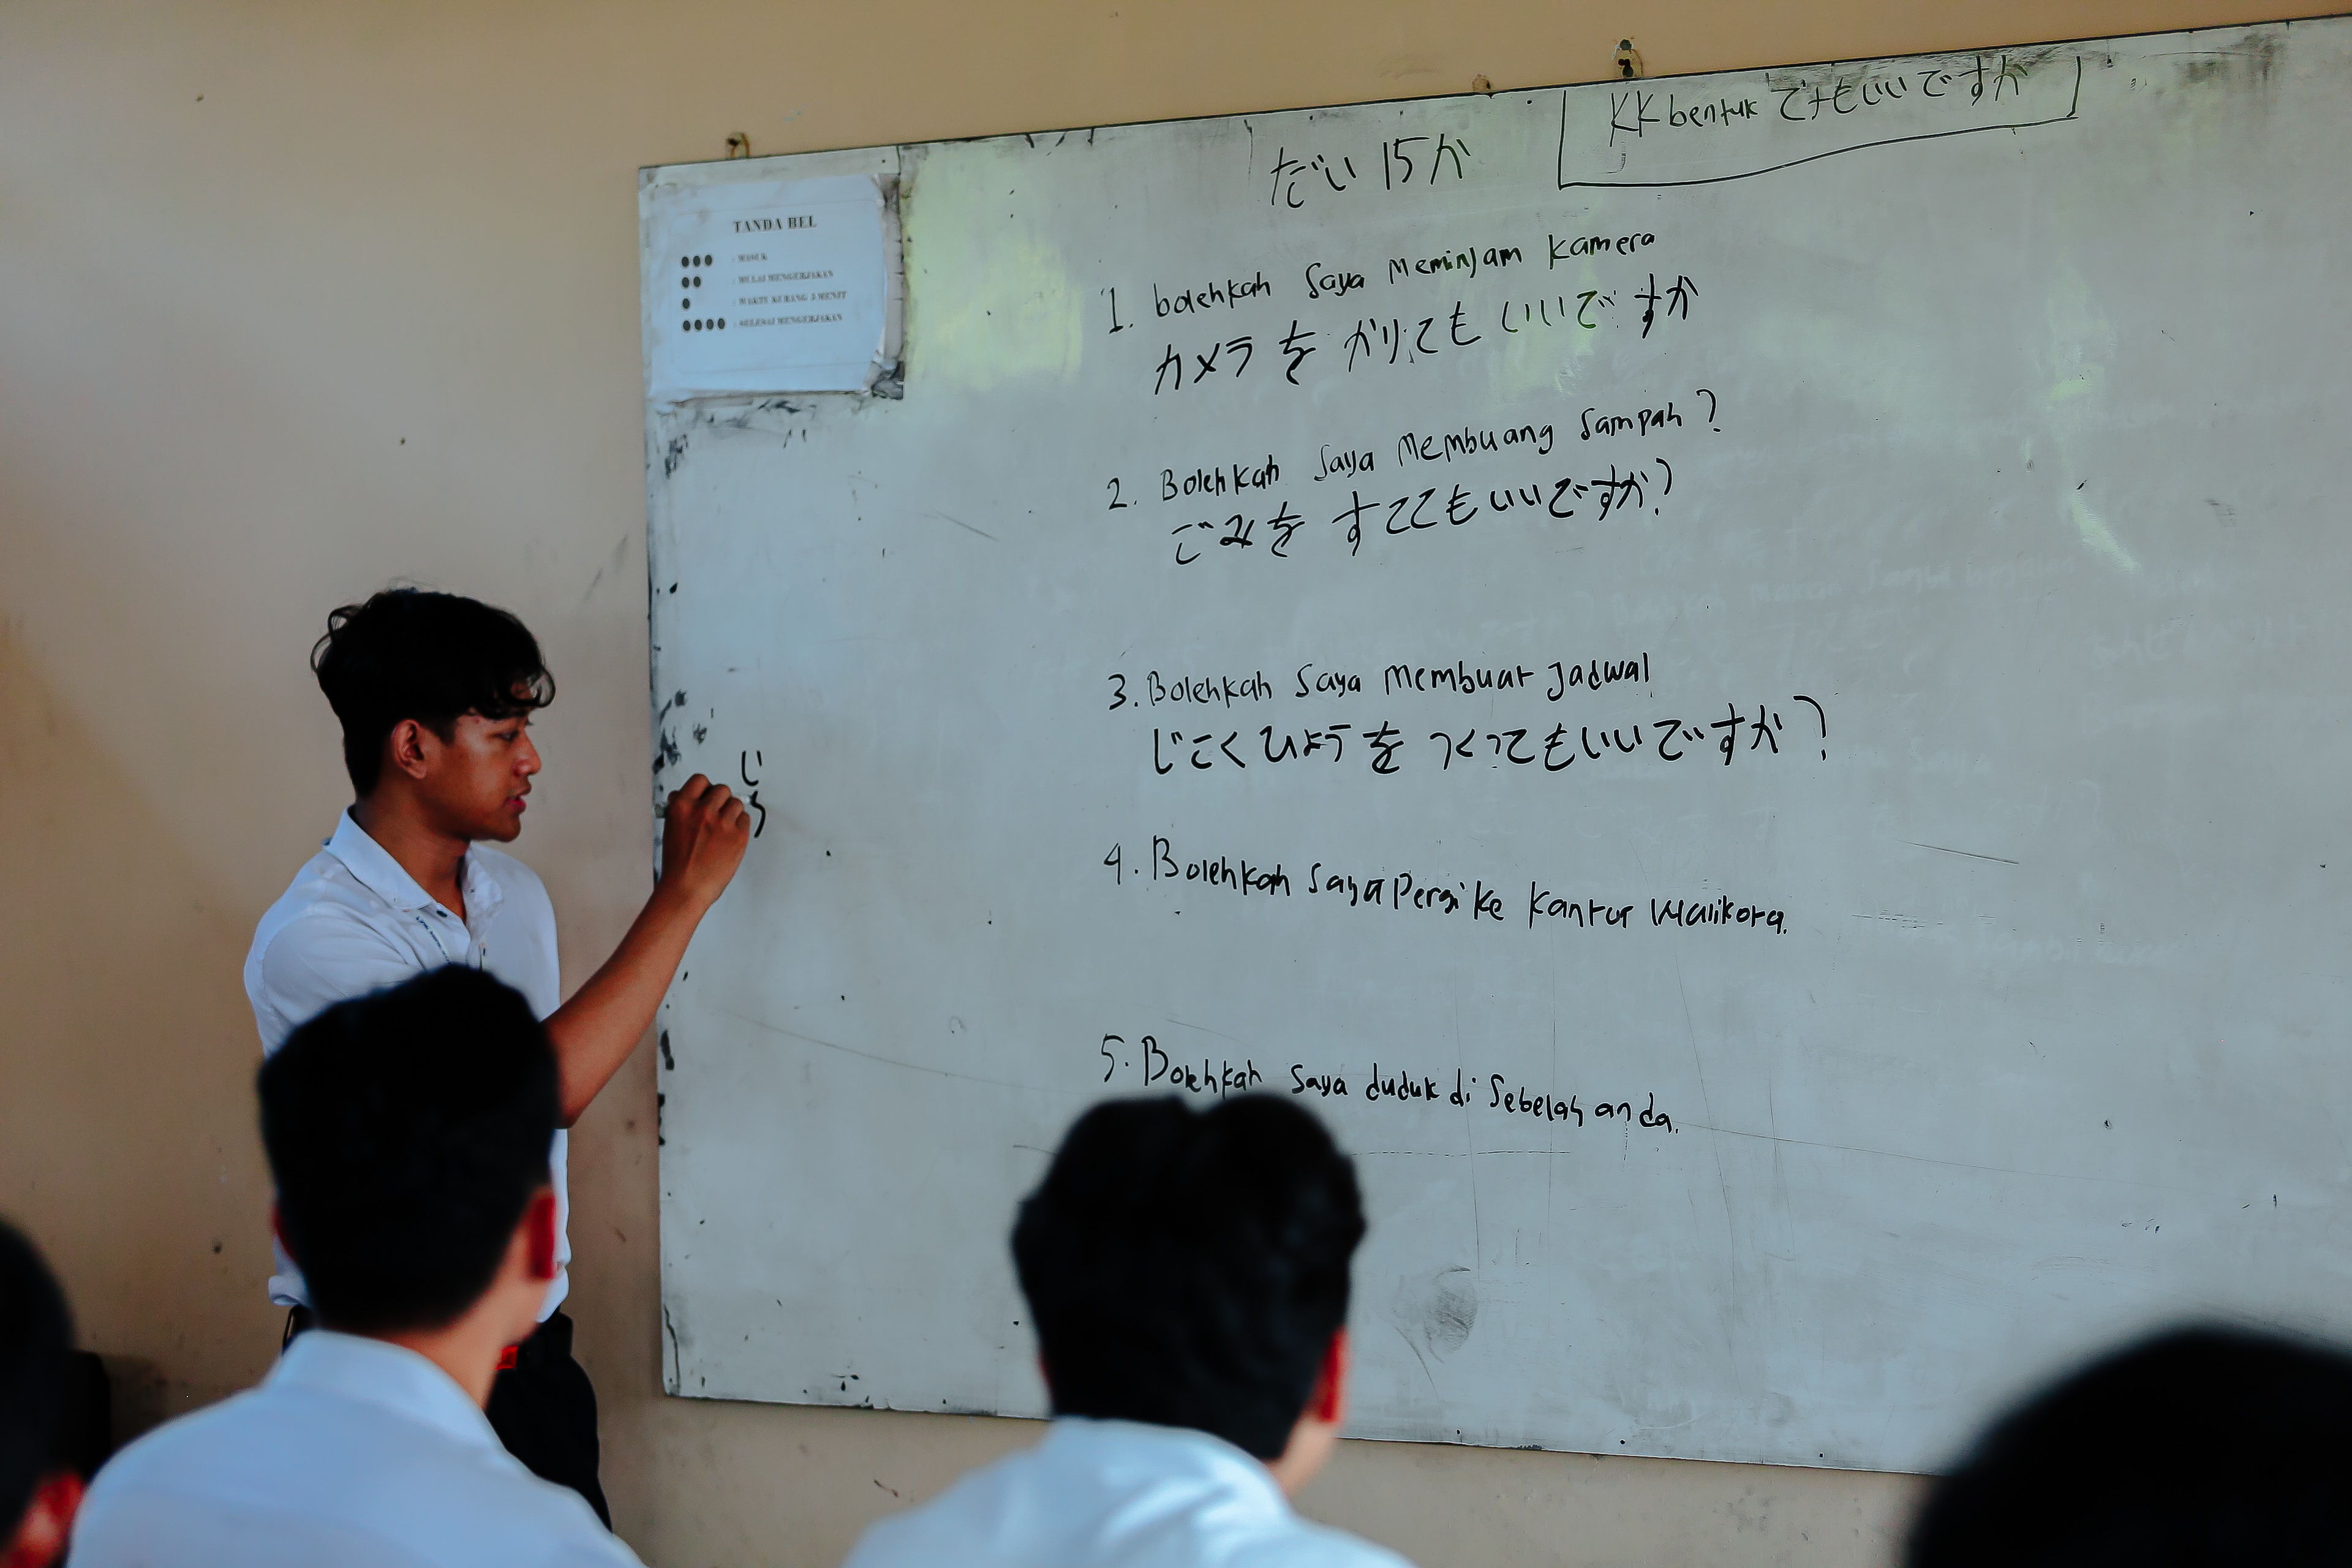 TANDA BEL
: MASUK
: MULAI MENGERJAKAN
: WAKTU KURANG 5 MENIT
: SELESAI MENGERJAKAN
だい 15 か
KK bentuk て+もいいですか
1. bolehkah saya meminjam kamera
カメラ を かりても いいですか
2. Bolehkah saya membuang sampah?
ごみを すててもいいですか?
3. Bolehkah saya membuat jadwal
じこくひょうを つくってもいいですか?
4. Bolehkah saya pergi ke kantor walikota.
5. Bolehkah saya duduk di sebelah anda.
じ